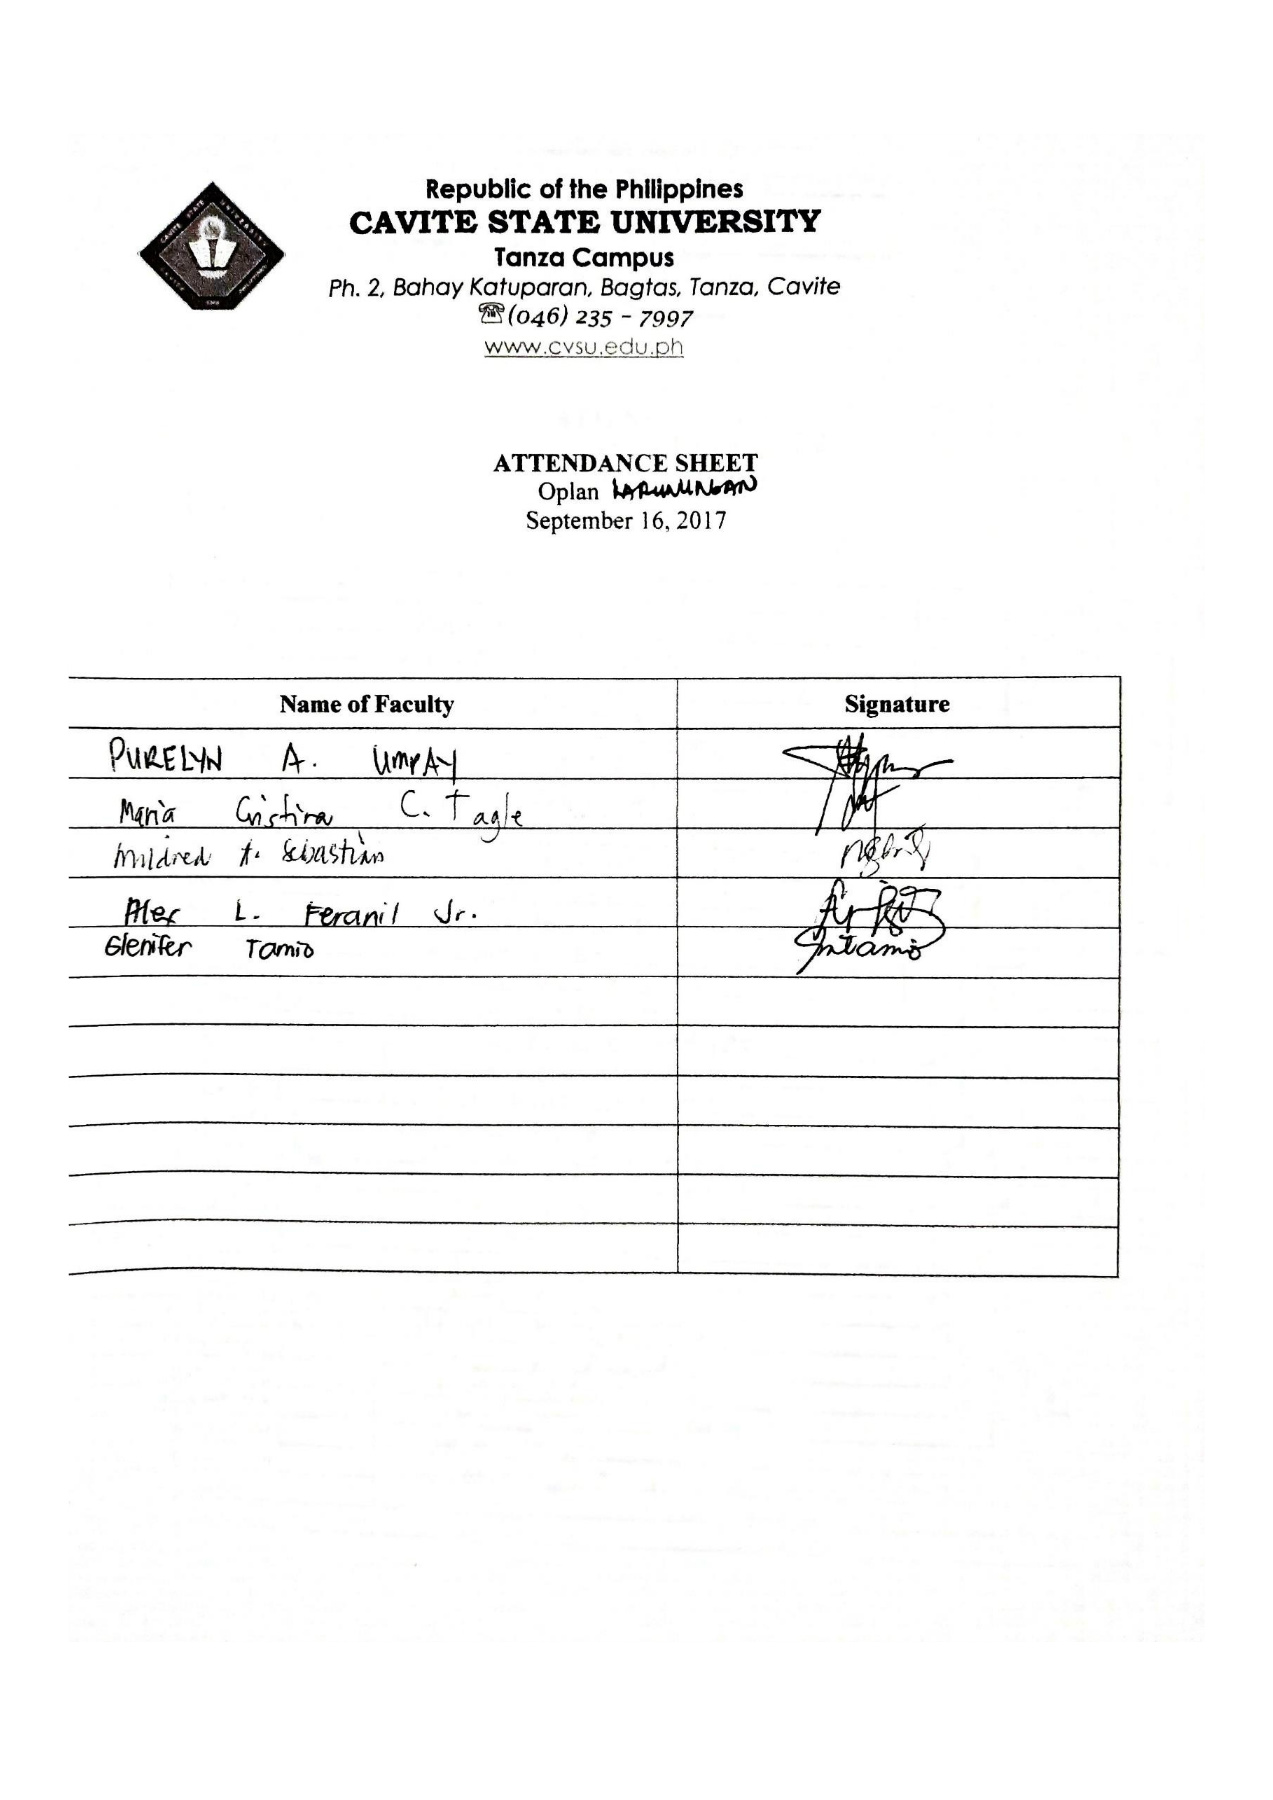 Republic of the Philippines
CAVITE STATE UNIVERSITY
Tanza Campus
Ph. 2, Bahay Katuparan, Bagtas, Tanza, Cavite
(046) 235 - 7997
www.cvsu.edu.ph
ATTENDANCE SHEET
Oplan
September 16, 2017
Name of Faculty Signature
PURELYN A. UMPAY
Maria Cristina C. Tagle
Mildred A. Sebastian
Alex L. Feranil Jr.
Glenifer Tamio